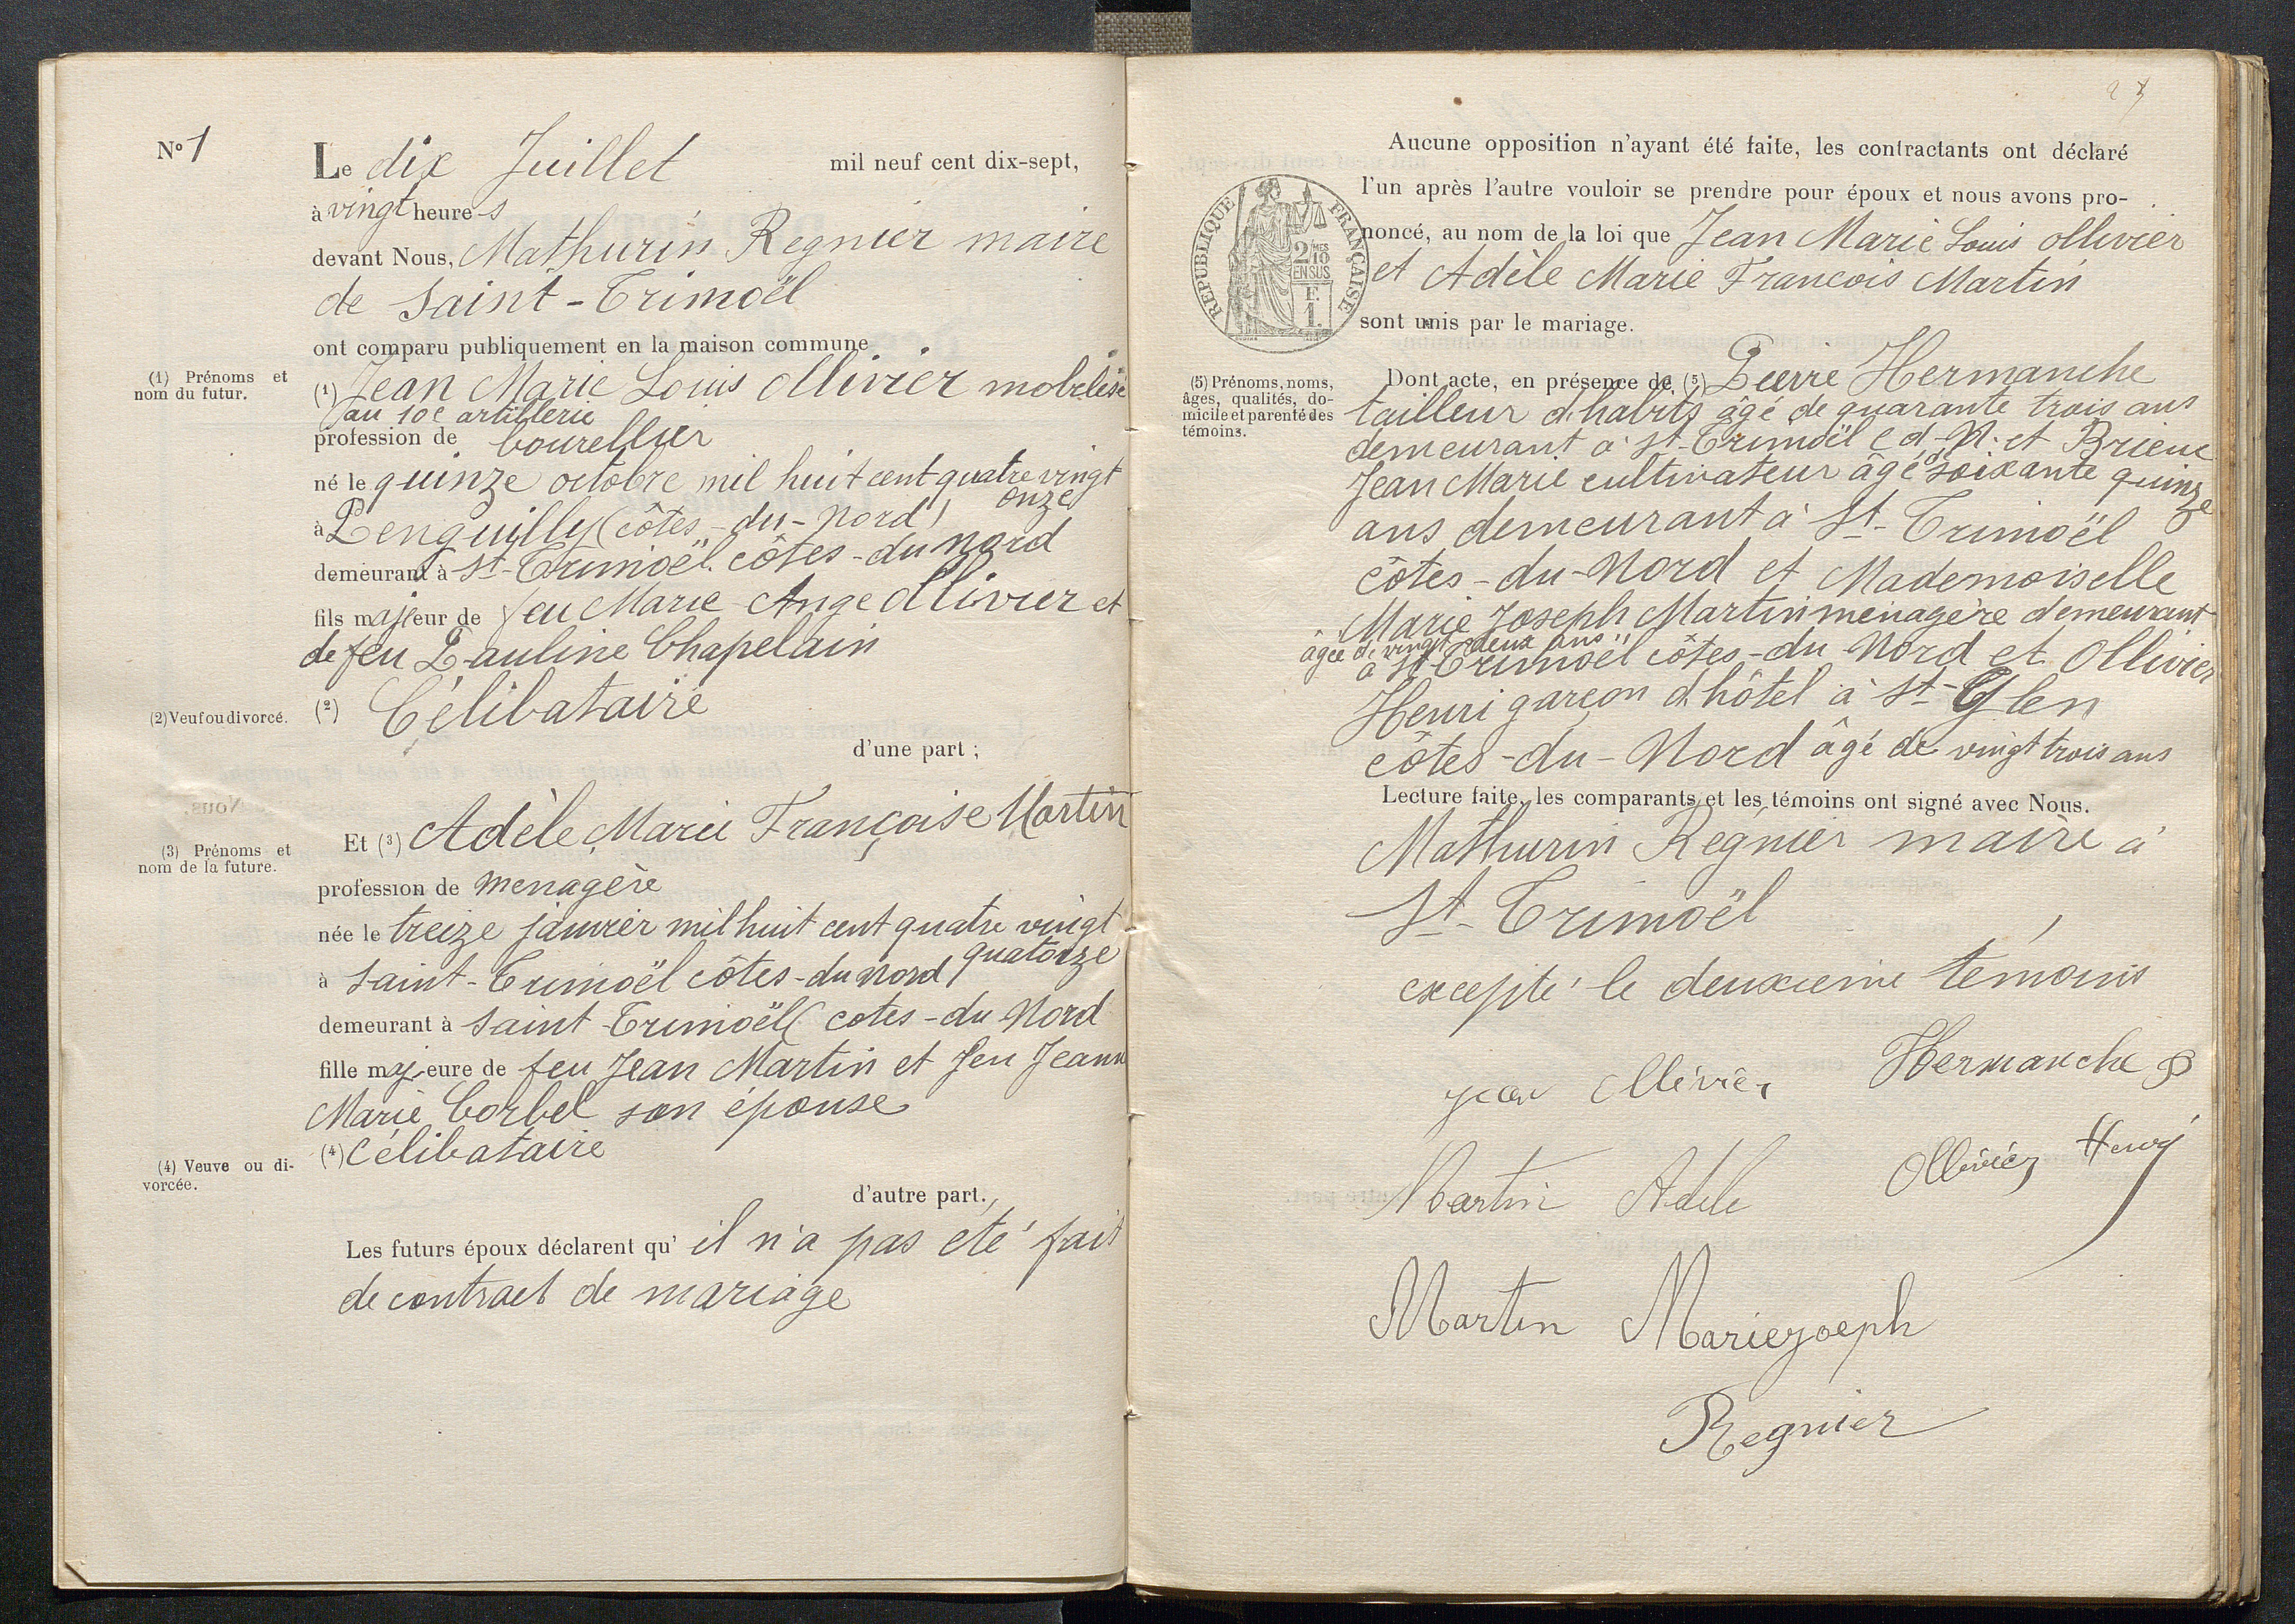 N° 1
Le dix Juillet mil neuf cent dix-sept,
à vingt heures
devant Nous, Mathurin Regnier maire
de Saint-Trimoël
ont comparu publiquement en la maison commune
(1) Prénoms et
nom du futur.
(1) Jean Marie Louis Ollivier mobilisé
au 10e artillerie
profession de bourellier
né le quinze octobre mil huit cent quatre vingt
onze
à Penguilly (côtes-du-Nord)
demeurant à St-Trimoël côtes-du nord
fils majeur de feu Marie Ange Ollivier et
de feu Pauline Chapelain
(2) Veuf ou divorcé.
(2) Célibataire
d'une part ;
(3) Prénoms et
nom de la future.
Et (3) Adèle Marie Françoise Martin
profession de menagère
née le treize janvier mil huit cent quatre vingt
quatorze
à Saint-Trimoël côtes-du nord
demeurant à Saint Trimoël ( cotes-du Nord
fille majeure de feu Jean Martin et feu Jeann
Marie Corbel son épouse
(4) Veuve ou di-
vorcée.
(4) Célibataire
d'autre part.
Les futurs époux déclarent qu' il n'a pas eté fait
de contract de mariage
Aucune opposition n'ayant été faite, les contractants ont déclaré
l'un après l'autre vouloir se prendre pour époux et nous avons pro-
noncé, au nom de la loi que Jean Marie Louis Ollivier
et Adèle Marie Francois Martin
sont unis par le mariage.
REPUBLIQUE FRANÇAISE
2/10 MES
EN SUS
F.
1.
(5) Prénoms, noms,
âges, qualités, do-
micile et parenté des
témoins.
Dont acte, en présence de (5) Pierre Hermanche
tailleur d'habits âgé de quarante trois ans
demeurant à St-Trimoël c d-N. et Brieuc
Jean Marie cultivateur âgé d soixante quinze
ans demeurant à St-Trimoël
côtes-du-Nord et Mademoiselle
Marie Joseph Martin menagère demeurant
âgée de vingt deux ans
à St-Trimoël côtes-du Nord et Ollivier
Henri garçon d'hôtel à St-Glen
côtes-du-Nord âgé de vingt trois ans
Lecture faite, les comparants et les témoins ont signé avec Nous.
Mathurin Regnier maire à
St-Trimoël
excepté le deuxième temouis
jean Ollivier Hermanche P
Martin Adele Ollivier Henry
Martin Mariejoeph
Regnier